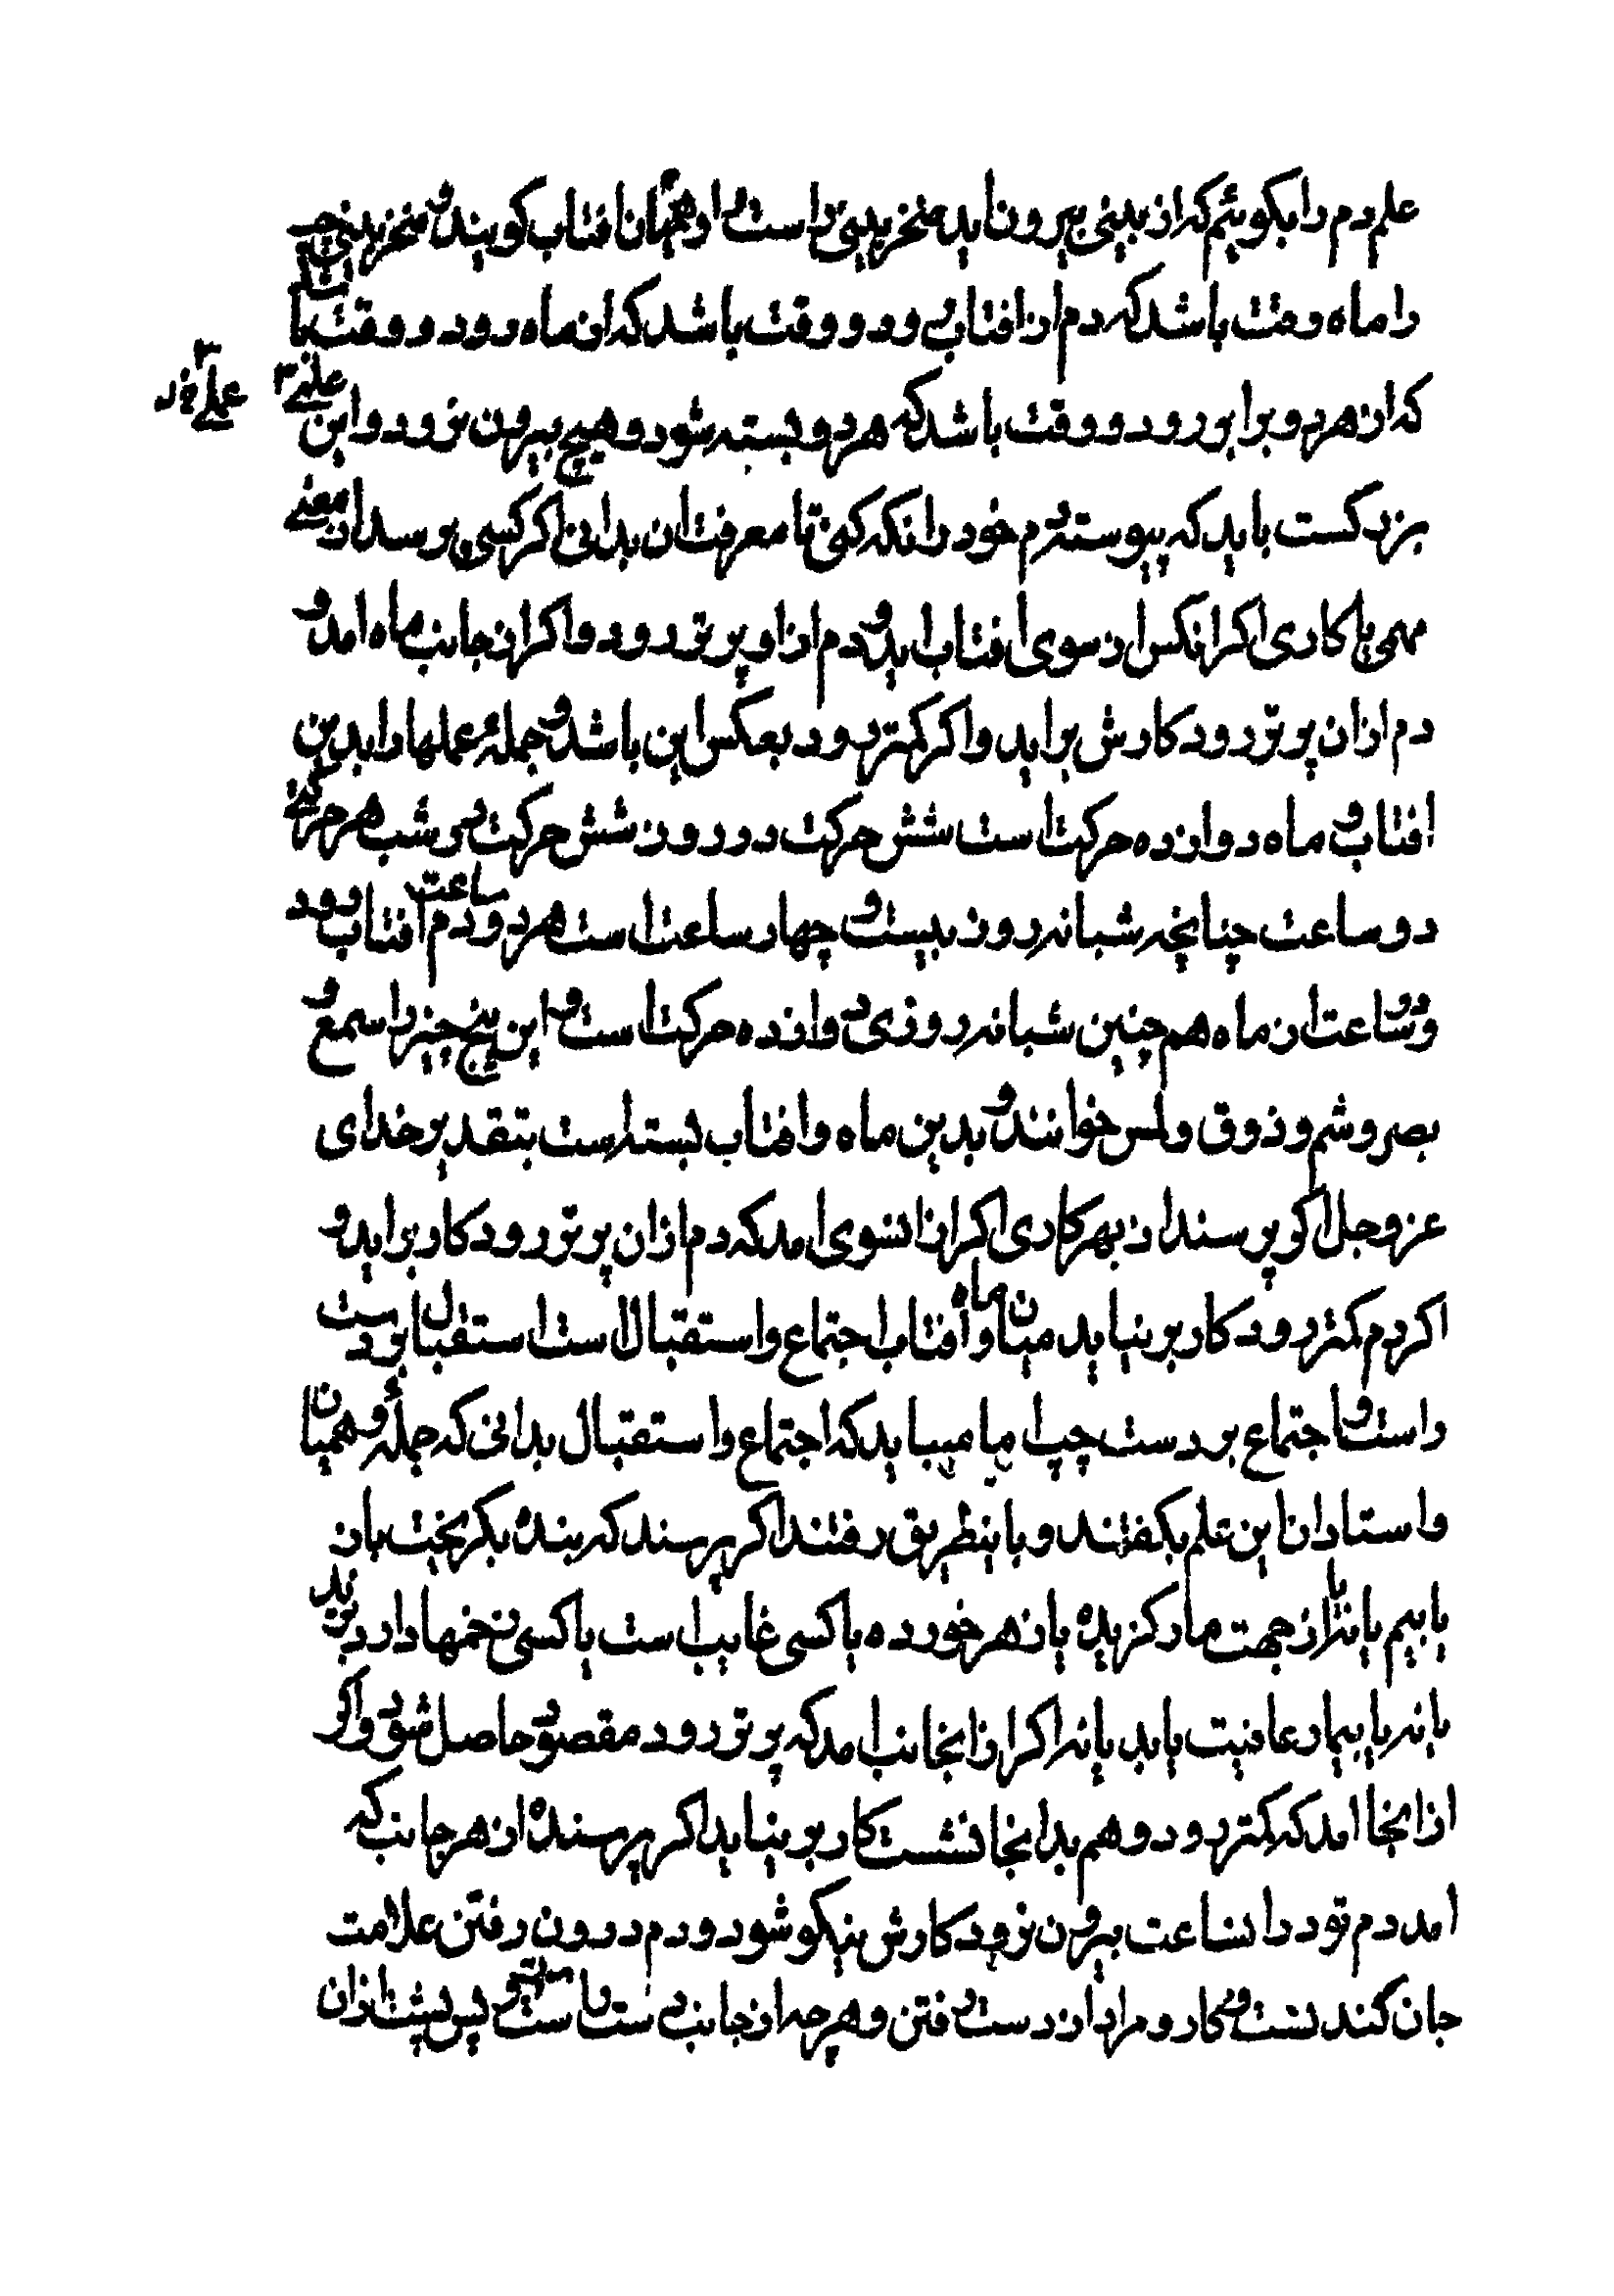 علم دم را بکوئیم که از بینی بیرون اید منخر بینی راست را دهمیان افتاب کویند و منخر بینی چپ
را ماه وقت باشد که دم از افتاب رود و وقت باشد که از ماه رود و وقت باشد
که از هر دو برابر رود و وقت باشد که هر دو بسته شود و هیچ بیرون نرود و این علمی
علمی
بزرکست باید که پیوسته دم خود را نکه کنی تا معرفت ان بدانی اکر کسی پرسد از معنی
مهمی یا کاری اکر انکس از سوی افتاب اید و دم از او پر تر رود و اکر از جانب ماه امد و
دم ازان پر تر رود کارش براید و اکر کمتر رود بعکس این باشد و جملهٔ عملها را بدین
افتاب و ماه دوازده حرکت است شش حرکت در روز و شش حرکت در شب هر حرکتی
دو ساعت چنانچه شبانه روز بیست و چهار ساعت است هر دو ساعت دم افتاب رود
و دو ساعت از ماه هم چنین شبانه روزی دوازده حرکت است و این پنج چیز را سمع و
بصر و شم و ذوق و لمس خوانند و بدین ماه و افتاب بسته است بتقدیر خدای
عز و جل اکر پرسند از بهر کاری اکر ازانسوی امد که دم ازان پر تر رود کار براید و
اکر دم کمتر رود کار بر نیاید میان ماه و افتاب اجتماع و استقبال است استقبال بر دست
راست و اجتماع بر دست چپ اما میباید که اجتماع و استقبال بدانی که جملهٔ همیان
و استادان این علم بکفتند و باینطریق رفتند اکر پرسند که بنده بکریخت باز
یابیم یا نه یا از جهت مار کزیده یا زهر خورده یا کسی غایب است یا کسی زخمها دارد زید
یا نه یا بیمار عافیت یابد یا نه اکر ازانجانب امد که پر تر رود مقصود حاصل شود و اکر
ازانجا امد که کمتر رود و هم بدانجا نشست کار بر نیاید اکر پرسنده از هر جانب که
امد دم تو دران ساعت بیرون نرود کارش نیکو شود و دم درون رفتن علامت
جان کندنست و کار و مراد از دست رفتن و هر چه از جانب دست راست و پس پشت ازان